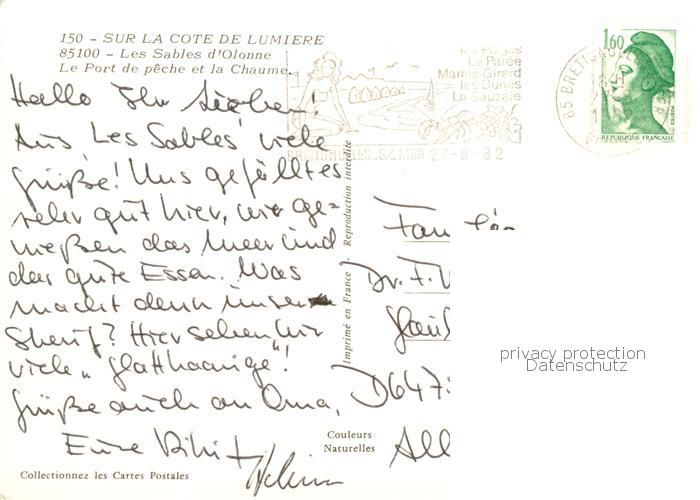 150 - SUR LA COTE DE LUMIERE
85100 - Les Sables d'Olonne
Le Port de pêche et la Chaume.
Hallo Ihr Lieben!
Aus Les Sables viele
Grüße! Uns gefällt es
sehr gut hier, wir ge=
nießen das Meer und
das gute Essen. Was
macht denn unser
Sherif? Hier sehen wir
viele „Glatthaarige"!
Grüße auch an Oma,
Eure
Collectionnez les Cartes Postales
La Parée
Marais Girard
les Dunes
La Sauzaie
BRETIGNOLLES S/MER 27-8-82
Imprimé en France - Reproduction interdite
1,60
REPUBLIQUE FRANÇAISE
POSTES
Dr. F.
D647
All
Couleurs
Naturelles
privacy protection
Datenschutz